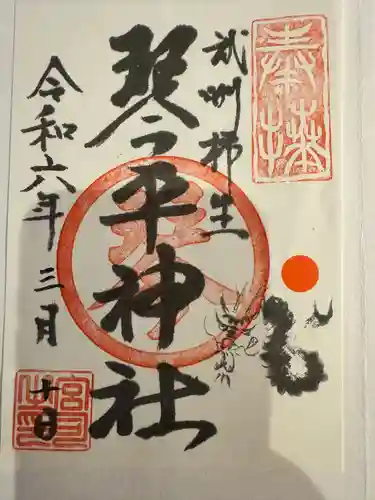 奉拝
武州柿生
琴平神社
令和六年三月
十日